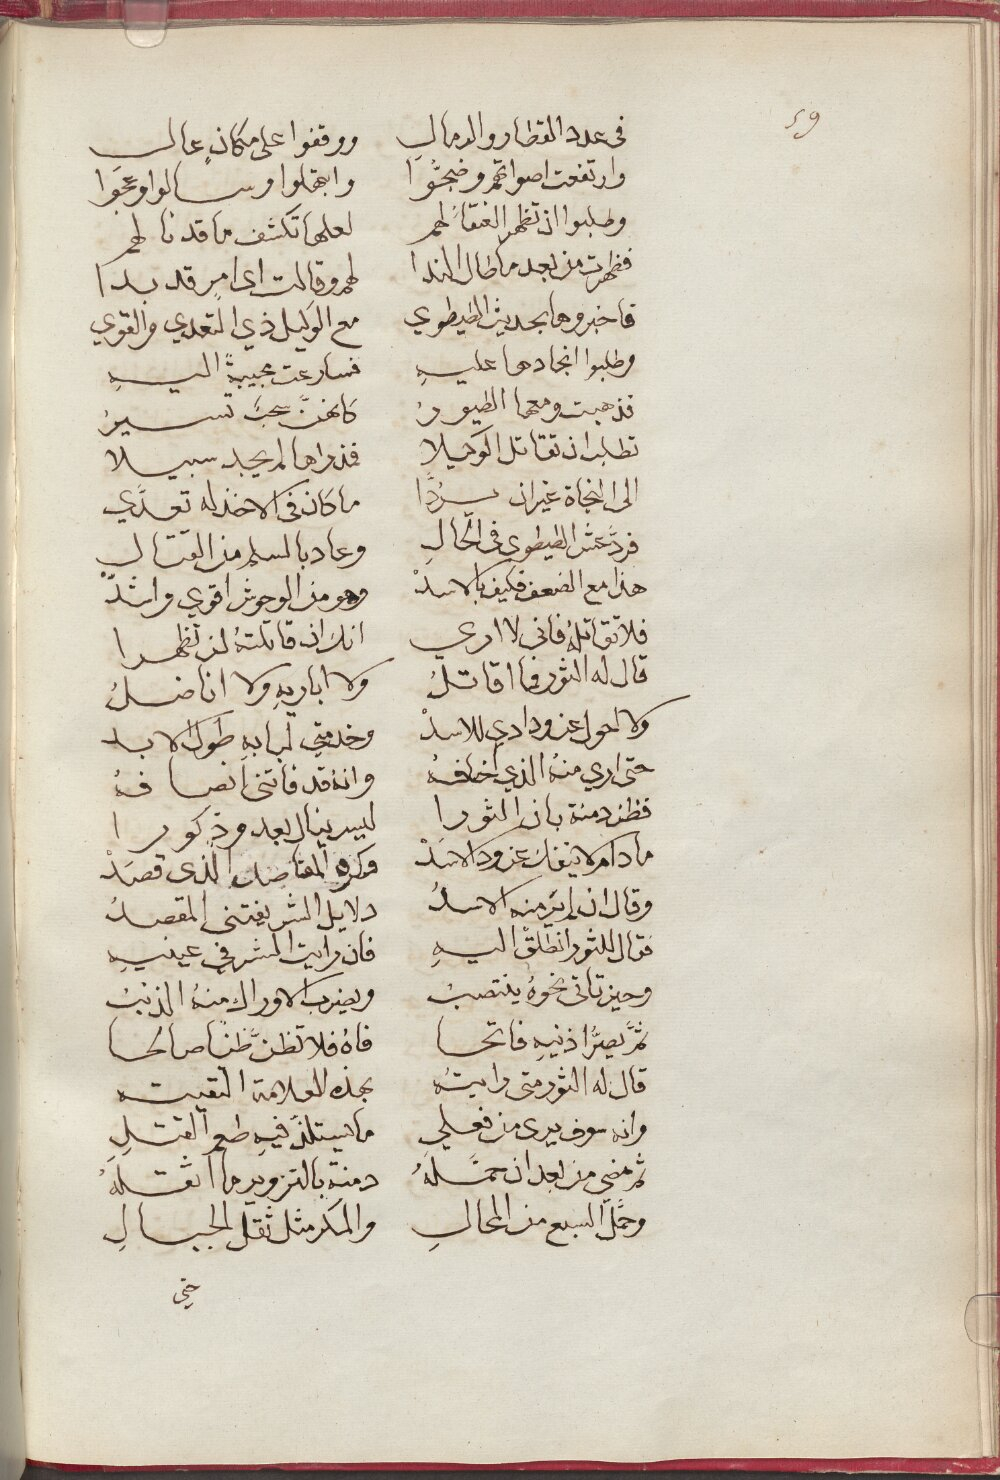 59
في عدد القطار والرمالِ ووقفوا على مكانٍ عالـــــي
وارتفعت اصواتهم وضجّوا وابتهلوا وسالوا وعجّوا
وطلبوا ان تظهر العنقاء لهم لعلها تكشف ما قد نالهم
فظهرت من بعد ما طال الندا لهم وقالت اي امرٍ قد بدا
فاخبروها بحديث الطيطوي مع الوكيل ذي التعدي والقوي
وطلبوا انجادها عليهِ فسارعت مجيبةً اليهِ
فذهبت ومعها الطيورُ كانهنَّ سحبٌ تسيرُ
تطلب ان تقاتل الوكيلا فمذ راها لم يجد سبيلا
الى النجاة غير ان يردَّا ما كان في الاخذ له تعدَّي
فردَّ عش الطيطوي في الحالِ وعاد بالسلم من القتالِ
هذا مع الضعف فكيف بالاسدْ وهو من الوحوش اقوي واشدّ
فلا تقاتلهُ فاني لا اري انك ان قاتلتهُ لن تظهرا
قال له الثور فما اقاتلُ ولا اباريهِ ولا اناضلُ
ولا احول عن ودادي للاسدْ وخدمتي لبابهِ طول الابد
حتى اري منهُ الذي اخافهُ وانهُ قد فاتني انصافهُ
فظن دمنة بان الثورا ليس ينال بعد مذكورا
ما دام لا ينفك عن ود الاسَدْ وكره المقاصد الذي قصَدْ
وقال ان لم يَرَ منه الاسدُ دلايل الشر يفتني المقصدُ
فقال للثور انطلقْ اليهِ فان رايت الشر في عينيهِ
وحين تاتي نحوهُ ينتصبُ ويضرب الاوراك منهُ الذنبُ
ثمَّ يصرُّ اذنيهِ فاتحا فاهُ فلا تظنَّ ظنًا صالحا
قال له الثور متى رايتُه بهذه العلامة التقيته
وانه سوف يرى من فعلي ما يستلذّ فيهِ طعم القتلِ
ثم مضي من بعد ان حمَّلهُ دمنة بالتزوير ما اثقلهُ
وحمَّل السبع من المحالِ والمكر مثل ثقل الجبالِ
حتي